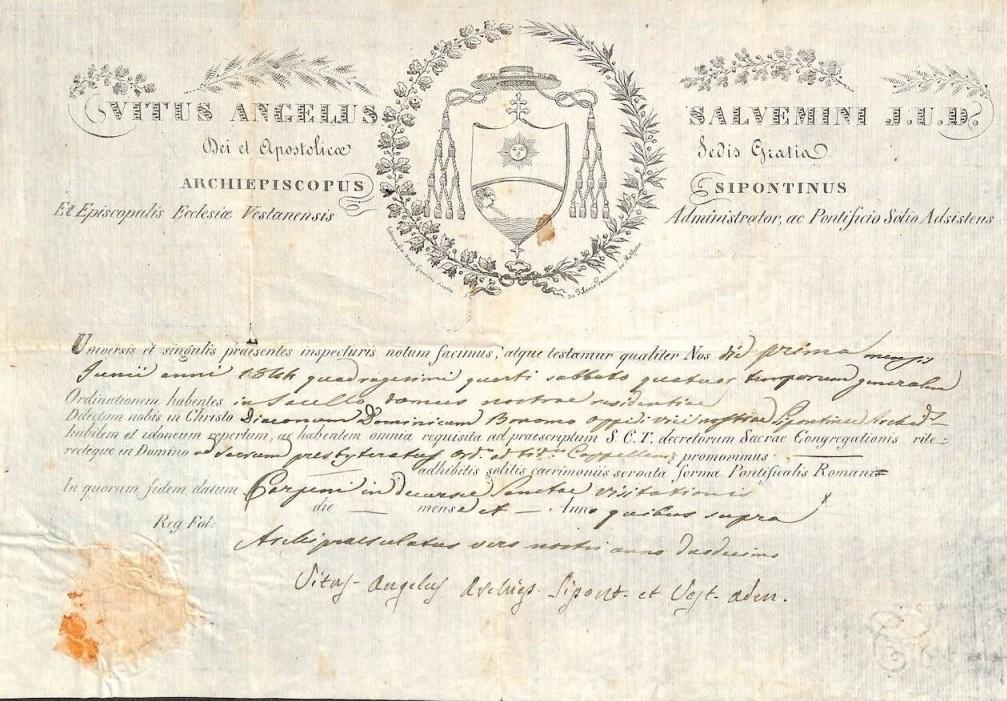 VITUS ANGELUS SALVEMINI J.U.D.
Dei et Apostolicæ Sedis Gratia
ARCHIEPISCOPUS SIPONTINUS
Et Episcopalis Ecclesiæ Vestanensis Administrator, ac Pontificio Solio Adsistens
Universis et singulis præsentes inspecturis notum facimus, atque testamur qualiter Nos die prima mensis
Junii anni 1844 quadragesimi quarti sabbato quatuor temporum generalem
Ordinationem habentes in Sacello domus nostrae residentiae
Dilectum nobis in Christo Diaconum D. Dominicum Bonomo oppidi vici nostrae Sipontinae
habilem et idoneum repertum, ac habentem omnia requisita ad praescriptum S. C. T. decretorum Sacrae Congregationis rite:
recteque in Domino ad Sacrum presbyteratus ord. ad tit. Cappellaniae promovimus
adhibitis solitis caerimoniis servata forma Pontificalis Romani
In quorum fidem datum Carpini in decursu Sanctae visitationis
die — mense et — Anno quibus supra
Reg Fol:
Archipraesulatus vero nostri anno duodecimo
Vitus Angelus Archiep. Sipont. et Vest. adm.